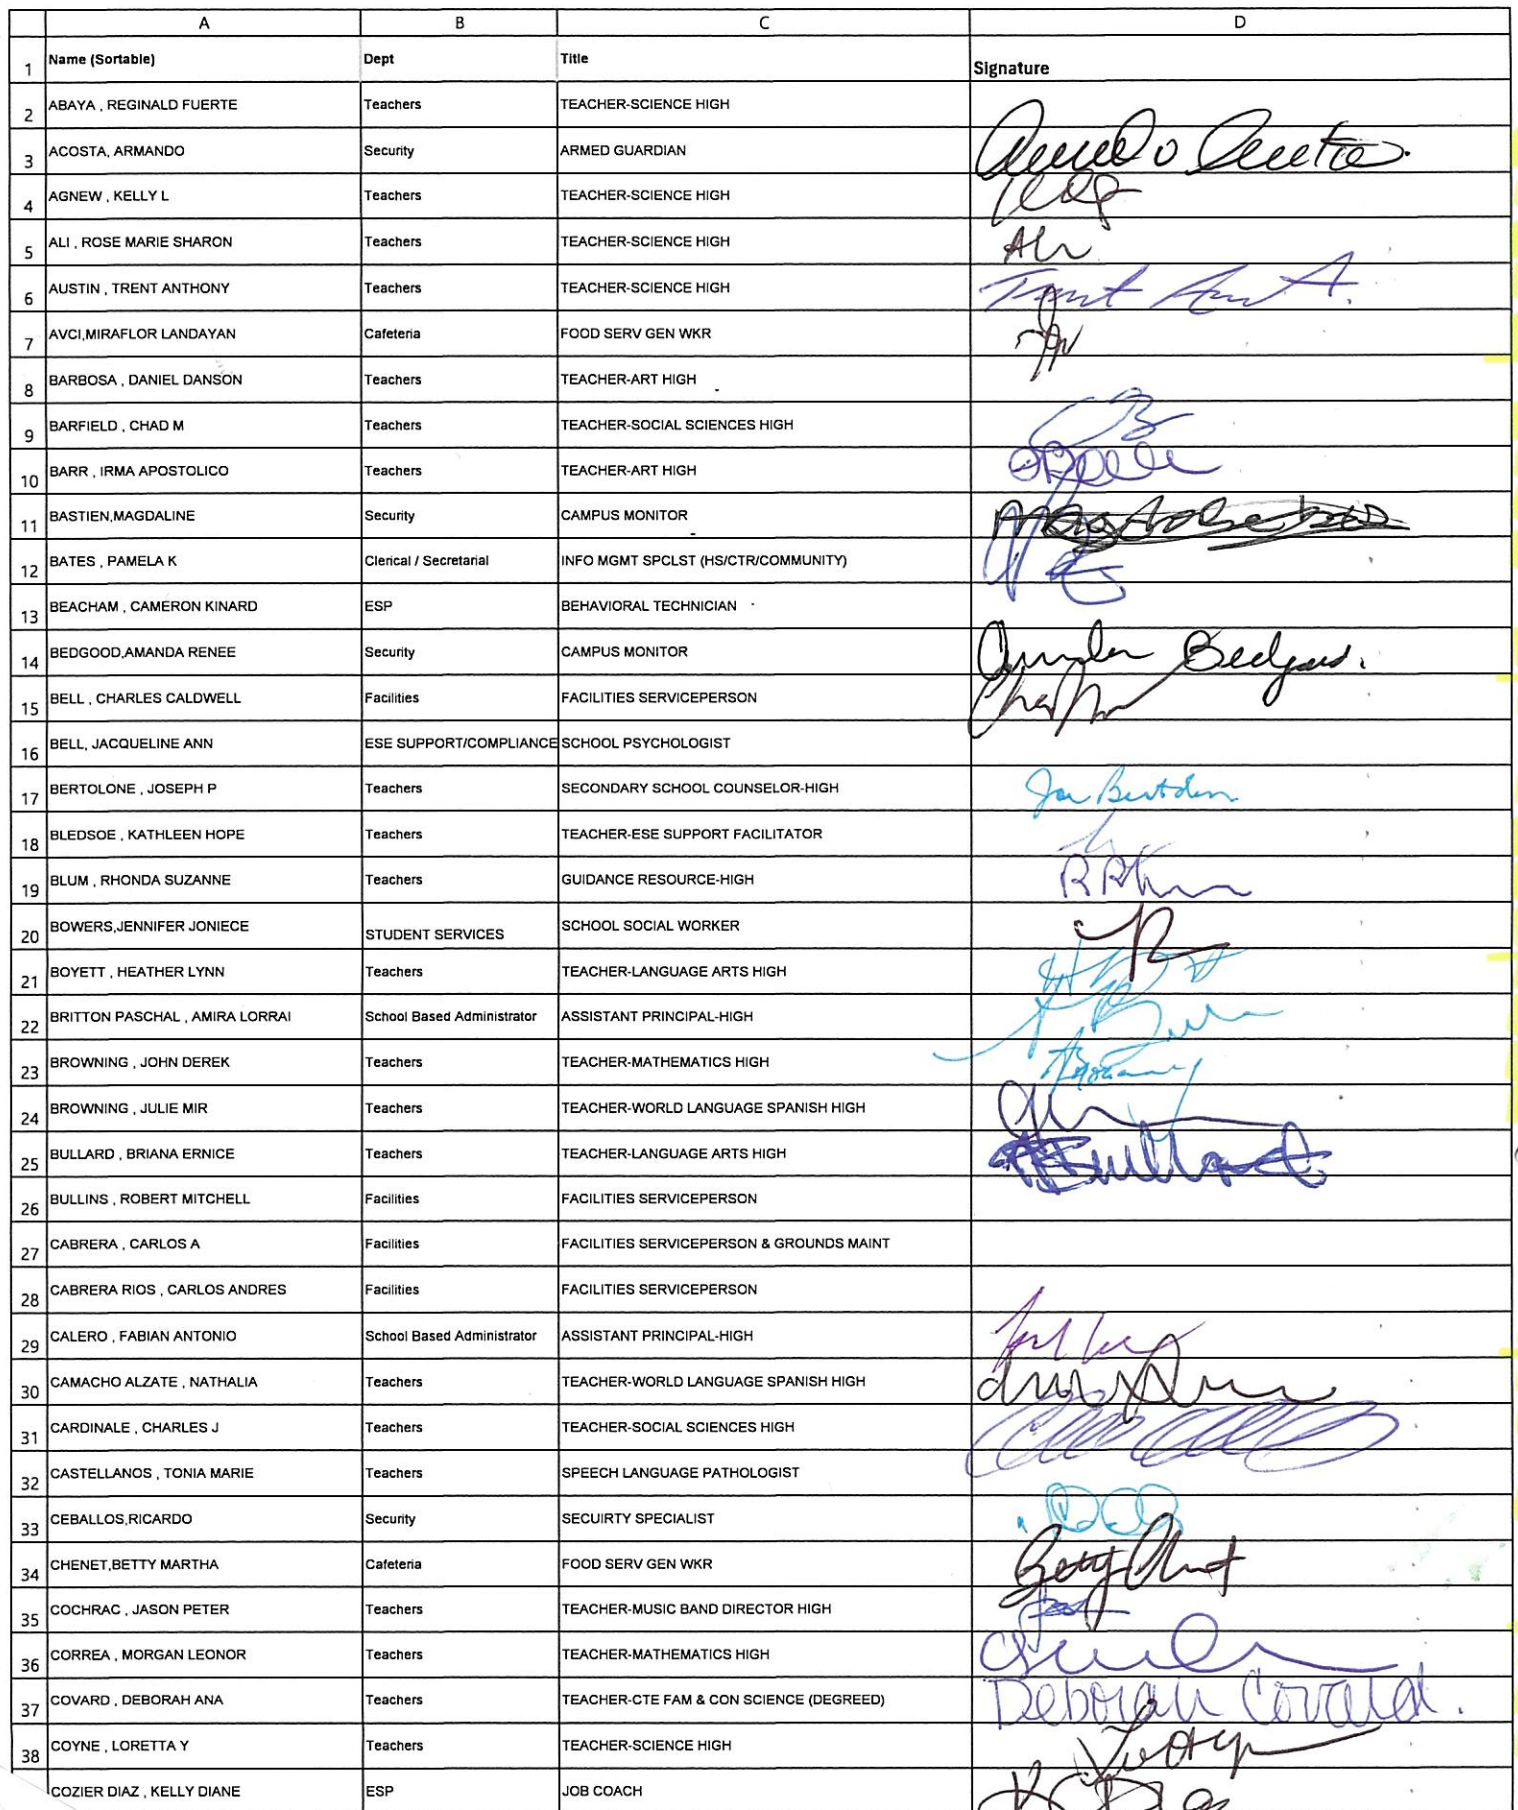 A B C D
1 Name (Sortable) Dept Title Signature
2 ABAYA , REGINALD FUERTE Teachers TEACHER-SCIENCE HIGH
3 ACOSTA, ARMANDO Security ARMED GUARDIAN
4 AGNEW , KELLY L Teachers TEACHER-SCIENCE HIGH
5 ALI , ROSE MARIE SHARON Teachers TEACHER-SCIENCE HIGH Ali
6 AUSTIN , TRENT ANTHONY Teachers TEACHER-SCIENCE HIGH Trent
7 AVCI,MIRAFLOR LANDAYAN Cafeteria FOOD SERV GEN WKR
8 BARBOSA , DANIEL DANSON Teachers TEACHER-ART HIGH
9 BARFIELD , CHAD M Teachers TEACHER-SOCIAL SCIENCES HIGH
10 BARR , IRMA APOSTOLICO Teachers TEACHER-ART HIGH
11 BASTIEN,MAGDALINE Security CAMPUS MONITOR
12 BATES , PAMELA K Clerical / Secretarial INFO MGMT SPCLST (HS/CTR/COMMUNITY)
13 BEACHAM , CAMERON KINARD ESP BEHAVIORAL TECHNICIAN
14 BEDGOOD,AMANDA RENEE Security CAMPUS MONITOR
15 BELL , CHARLES CALDWELL Facilities FACILITIES SERVICEPERSON
16 BELL, JACQUELINE ANN ESE SUPPORT/COMPLIANCE SCHOOL PSYCHOLOGIST
17 BERTOLONE , JOSEPH P Teachers SECONDARY SCHOOL COUNSELOR-HIGH
18 BLEDSOE , KATHLEEN HOPE Teachers TEACHER-ESE SUPPORT FACILITATOR
19 BLUM , RHONDA SUZANNE Teachers GUIDANCE RESOURCE-HIGH
20 BOWERS,JENNIFER JONIECE STUDENT SERVICES SCHOOL SOCIAL WORKER
21 BOYETT , HEATHER LYNN Teachers TEACHER-LANGUAGE ARTS HIGH
22 BRITTON PASCHAL , AMIRA LORRAI School Based Administrator ASSISTANT PRINCIPAL-HIGH
23 BROWNING , JOHN DEREK Teachers TEACHER-MATHEMATICS HIGH
24 BROWNING , JULIE MIR Teachers TEACHER-WORLD LANGUAGE SPANISH HIGH
25 BULLARD , BRIANA ERNICE Teachers TEACHER-LANGUAGE ARTS HIGH Bullard
26 BULLINS , ROBERT MITCHELL Facilities FACILITIES SERVICEPERSON
27 CABRERA , CARLOS A Facilities FACILITIES SERVICEPERSON & GROUNDS MAINT
28 CABRERA RIOS , CARLOS ANDRES Facilities FACILITIES SERVICEPERSON
29 CALERO , FABIAN ANTONIO School Based Administrator ASSISTANT PRINCIPAL-HIGH
30 CAMACHO ALZATE , NATHALIA Teachers TEACHER-WORLD LANGUAGE SPANISH HIGH
31 CARDINALE , CHARLES J Teachers TEACHER-SOCIAL SCIENCES HIGH
32 CASTELLANOS , TONIA MARIE Teachers SPEECH LANGUAGE PATHOLOGIST
33 CEBALLOS,RICARDO Security SECUIRTY SPECIALIST
34 CHENET,BETTY MARTHA Cafeteria FOOD SERV GEN WKR Betty Chenet
35 COCHRAC , JASON PETER Teachers TEACHER-MUSIC BAND DIRECTOR HIGH
36 CORREA , MORGAN LEONOR Teachers TEACHER-MATHEMATICS HIGH
37 COVARD , DEBORAH ANA Teachers TEACHER-CTE FAM & CON SCIENCE (DEGREED) Deborah Covard.
38 COYNE , LORETTA Y Teachers TEACHER-SCIENCE HIGH
COZIER DIAZ , KELLY DIANE ESP JOB COACH